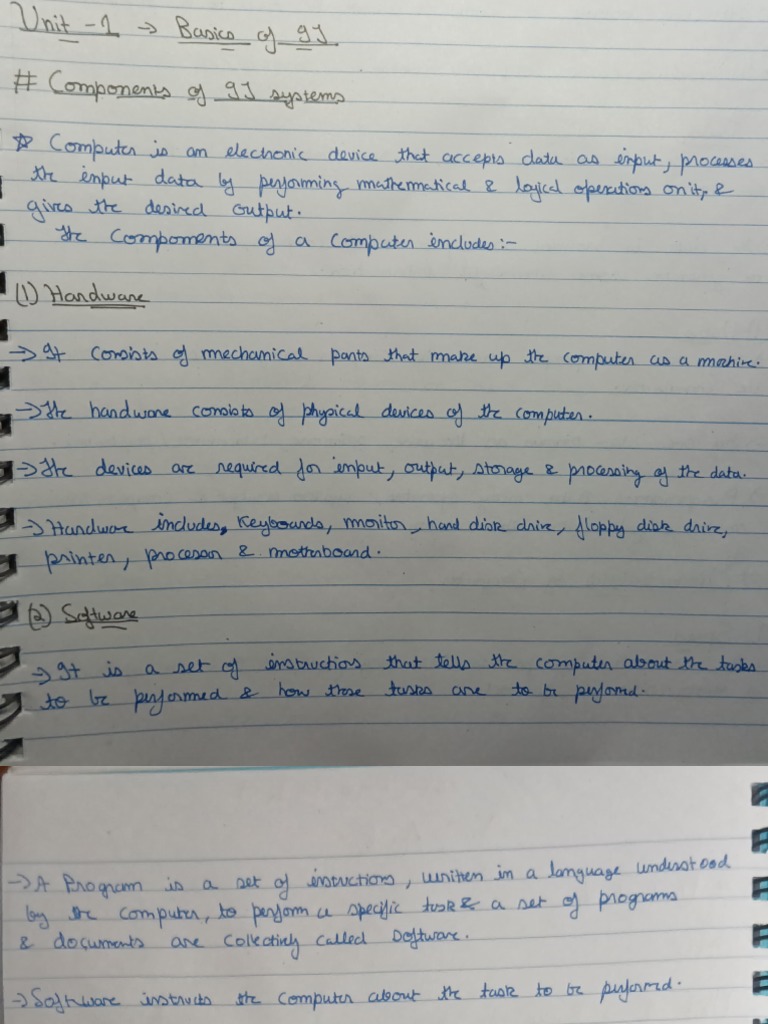 Unit - 1 → Basics of IT
# Components of IT systems
☆ Computer is an electronic device that accepts data as input, processes
the input data by performing mathematical & logical operations on it, &
gives the desired output.
The Components of a Computer includes :-
(1) Hardware
→ It consists of mechanical parts that make up the computer as a machine.
→ The hardware consists of physical devices of the computer.
→ The devices are required for input, output, storage & processing of the data.
→ Hardware includes, Keyboards, monitor, hard disk drive, floppy disk drive,
printer, processor & motherboard.
(2) Software
→ It is a set of instructions that tells the computer about the tasks
to be performed & how those tasks are to be perfomed.
→ A Program is a set of instuctions, written in a language understood
by the computer, to perform a specific task & a set of programs
& documents are Collectively called Software.
→ Software instructs the Computer about the task to be performed.